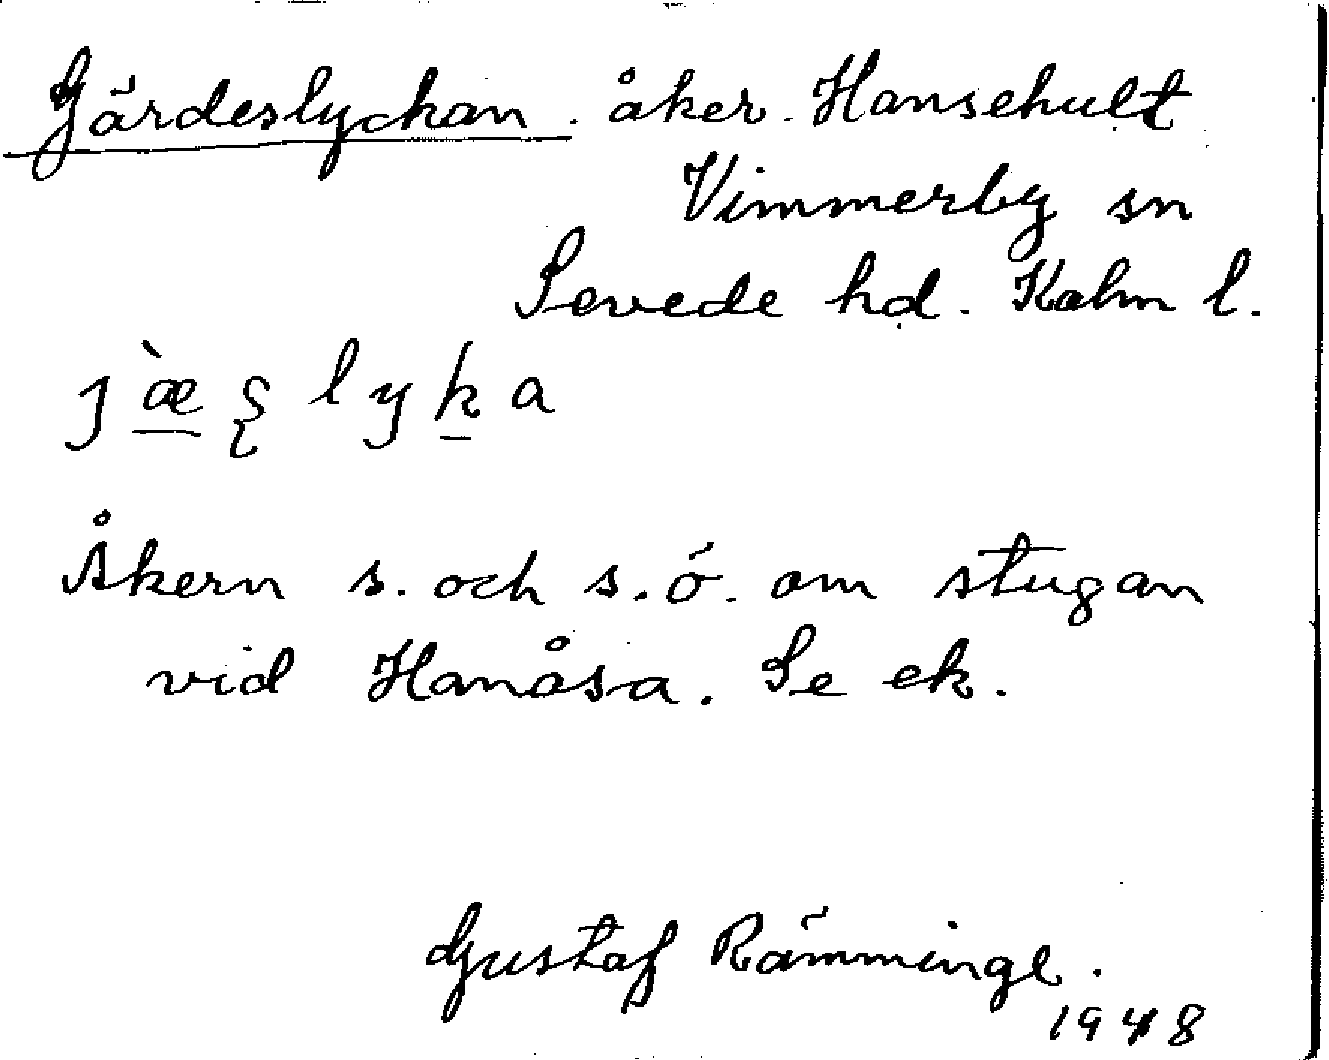 Gärdeslyckan. åker. Hansehult
Vimmerby sn
Sevede hd. Kalm l.
j æ̀ ʂ l y k a
Åkern s. och s.ö. om stugan
vid Hanåsa. Se ek.
Gustaf Rämminge.
1948